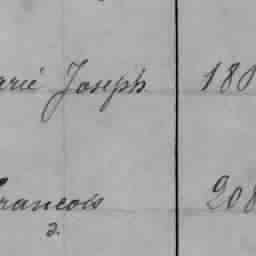 arie Joseph 180
rancois 208
2.